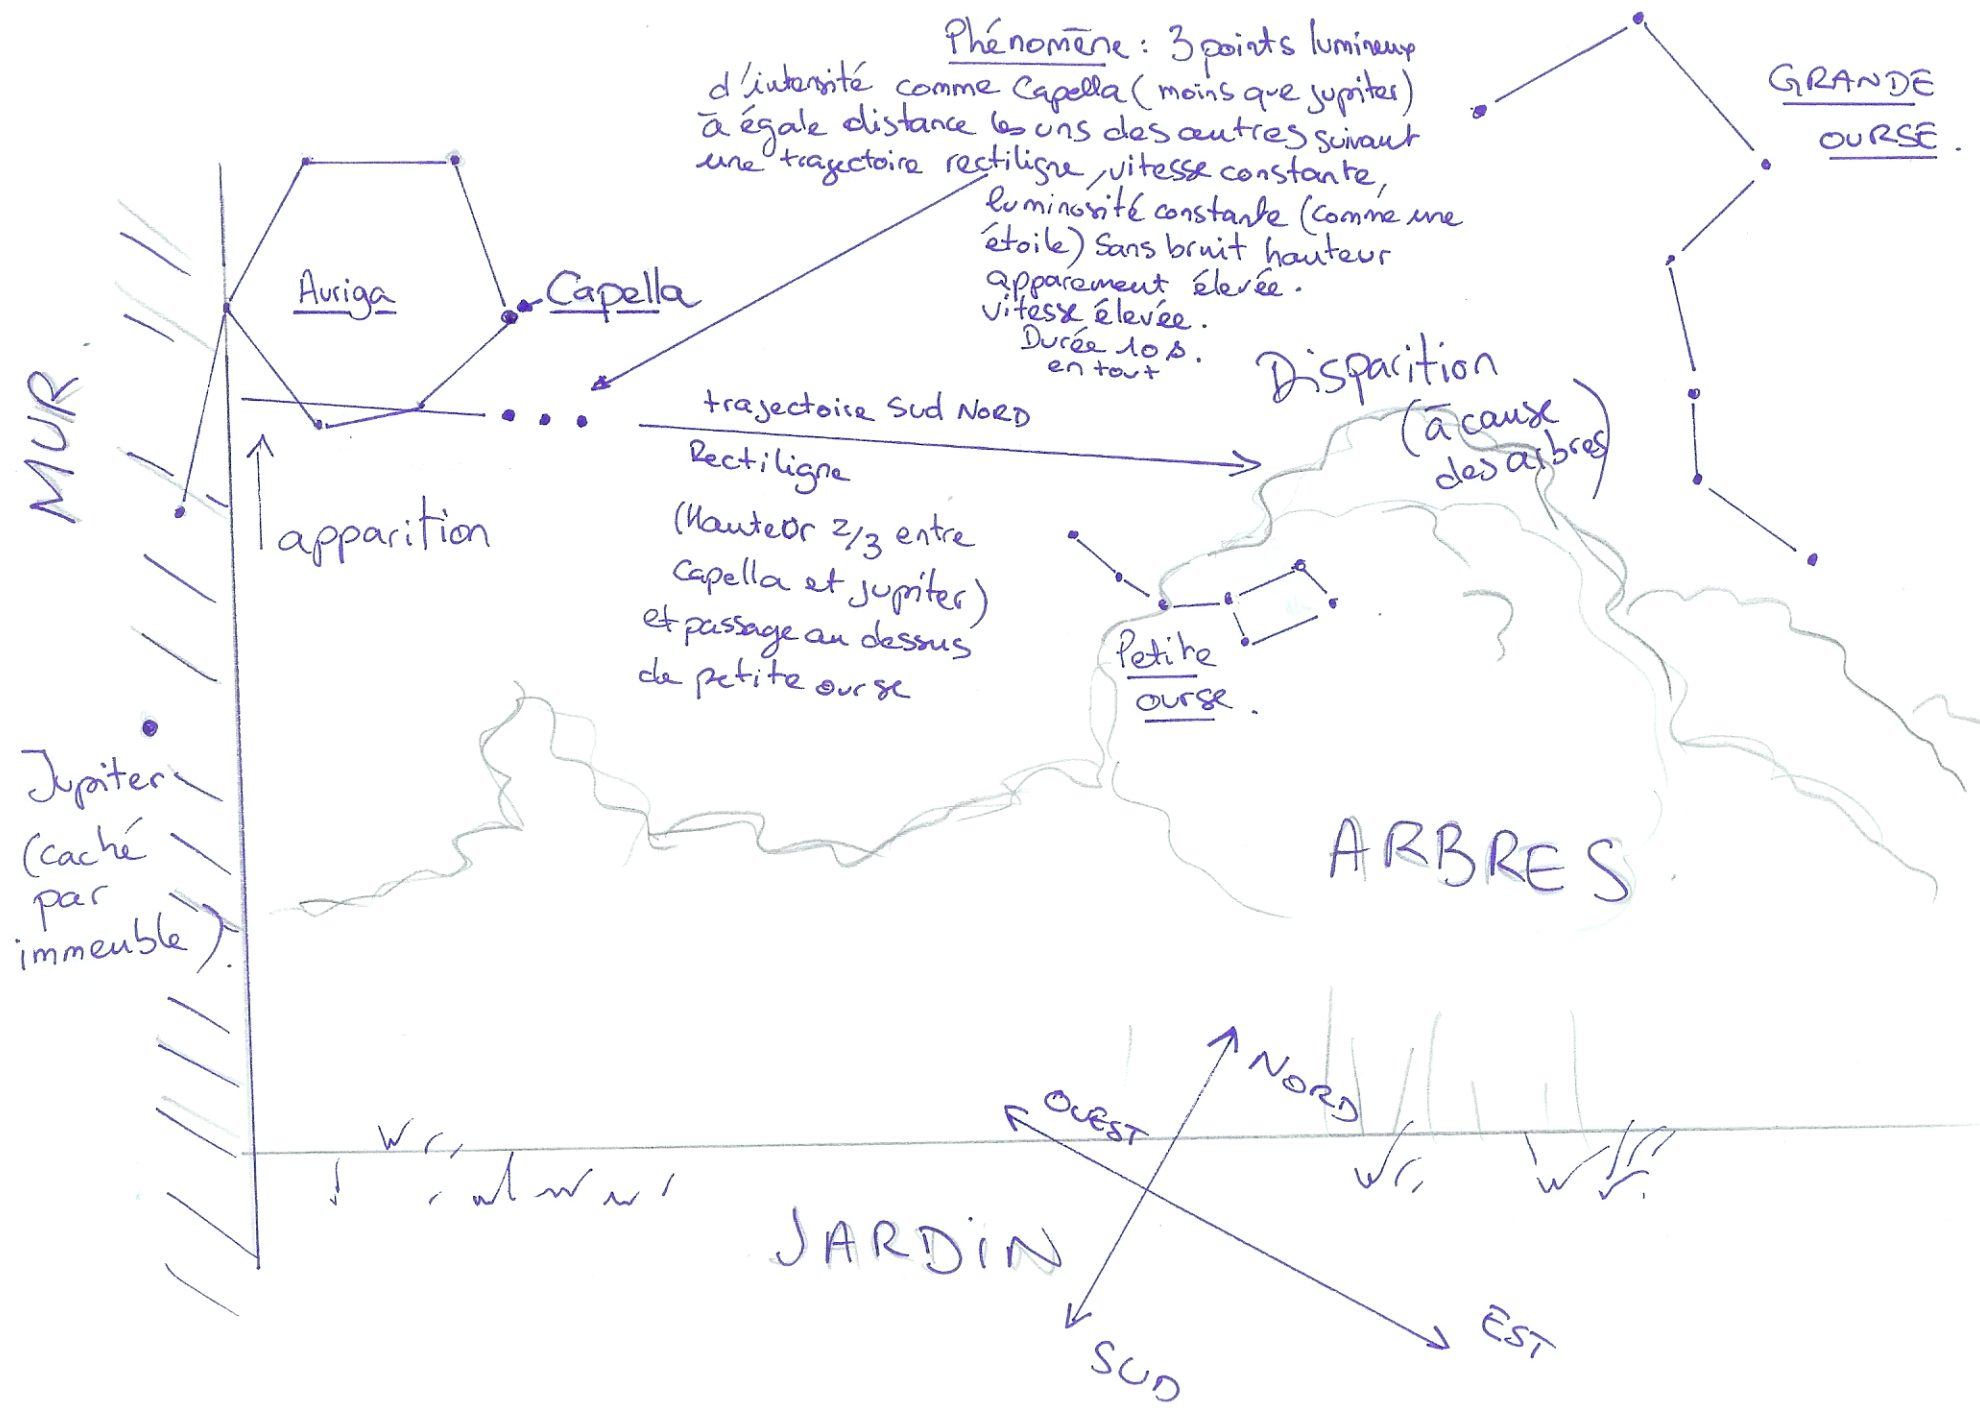 Phénomène : 3 points lumineux
d'intensité comme Capella (moins que jupiter)
à égale distance les uns des autres suivant
une trajectoire rectiligne, vitesse constante,
luminosité constante (comme une
étoile) Sans bruit hauteur
apparement élevée.
vitesse élevée.
Durée 10 s.
en tout
GRANDE
OURSE.
Auriga
Capella
MUR
apparition
trajectoire Sud NORD
Rectiligne
(Hauteur 2/3 entre
Capella et jupiter)
et passage au dessus
de petite ourse
Disparition
(à cause
des arbres)
Petite
ourse.
Jupiter
(caché
par
immeuble).
ARBRES
NORD
OUEST
JARDIN
EST
SUD